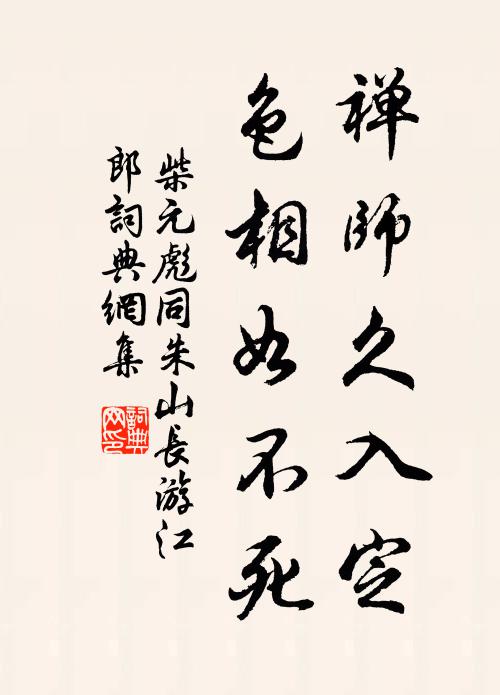 禅師久入定
色相如不死
柴元彪同朱山長游江
郎詞典網集
詞典
网印